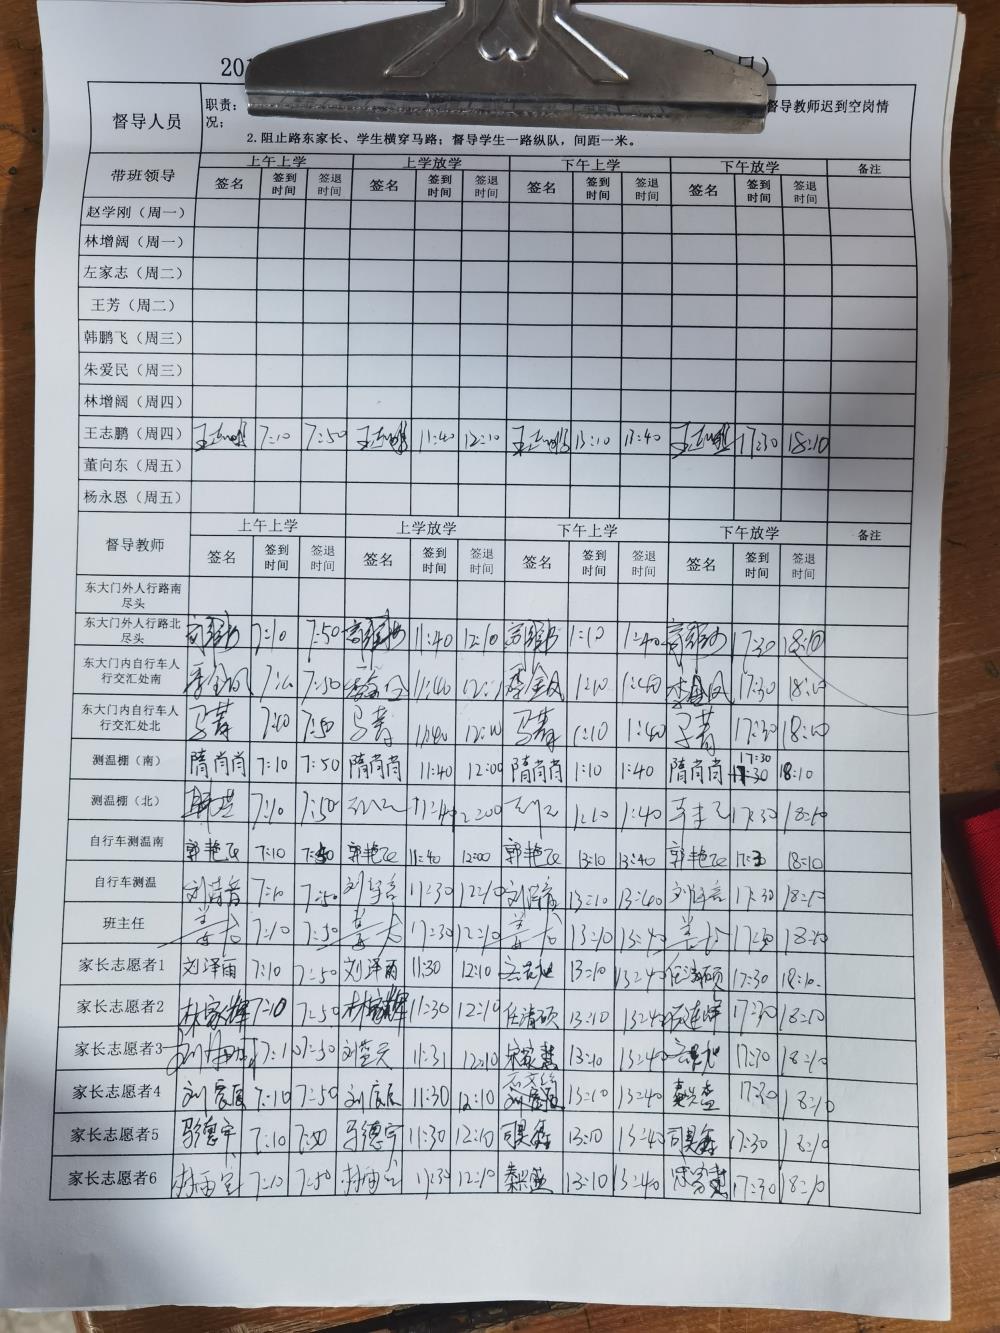 201
日）
督导人员
职责：
督导教师迟到空岗情
况；
2.阻止路东家长、学生横穿马路；督导学生一路纵队，间距一米。
带班领导 上午上学 上学放学 下午上学 下午放学 备注
签名 签到时间 签退时间 签名 签到时间 签退时间 签名 签到时间 签退时间 签名 签到时间 签退时间
赵学刚（周一）
林增阔（周一）
左家志（周二）
王芳（周二）
韩鹏飞（周三）
朱爱民（周三）
林增阔（周四）
王志鹏（周四） 王志鹏 7:10 7:50 王志鹏 11:40 12:10 王志鹏 13:10 13:40 王志鹏 17:30 18:10
董向东（周五）
杨永恩（周五）
督导教师 上午上学 上学放学 下午上学 下午放学 备注
签名 签到时间 签退时间 签名 签到时间 签退时间 签名 签到时间 签退时间 签名 签到时间 签退时间
东大门外人行路南尽头
东大门外人行路北尽头 7:10 7:50 11:40 12:10 1:10 1:40 17:30 18:10
东大门内自行车人行交汇处南 7:10 7:50 11:40 12:10 1:10 1:40 17:30 18:10
东大门内自行车人行交汇处北 马菁 7:10 7:50 马菁 11:40 12:10 马菁 1:10 1:40 马菁 17:30 18:10
测温棚（南） 隋肖肖 7:10 7:50 隋肖肖 11:40 12:00 隋肖肖 1:10 1:40 隋肖肖 17:30 17:30 18:10
测温棚（北） 7:10 7:50 11:40 12:00 1:10 1:40 17:30 18:10
自行车测温南 郭艳 7:10 7:50 郭艳 11:40 12:00 郭艳 13:10 13:40 郭艳 17:30 18:10
自行车测温 7:10 7:50 11:30 12:10 13:10 13:40 17:30 18:10
班主任 7:10 7:50 17:30 12:10 13:10 13:40 17:30 18:10
家长志愿者1 刘泽雨 7:10 7:50 刘泽雨 11:30 12:10 13:10 13:40 任清硕 17:30 18:10
家长志愿者2 林家辉 7:10 7:50 林家辉 11:30 12:10 任清硕 13:10 13:40 17:30 18:10
家长志愿者3 7:10 7:50 11:31 12:10 宋家慧 13:10 13:40 17:30 18:10
家长志愿者4 7:10 7:50 11:30 12:10 13:10 13:40 17:30 18:10
家长志愿者5 马德宇 7:10 7:50 马德宇 11:30 12:10 13:10 13:40 17:30 18:10
家长志愿者6 7:10 7:50 11:30 12:10 13:10 13:40 17:30 18:10